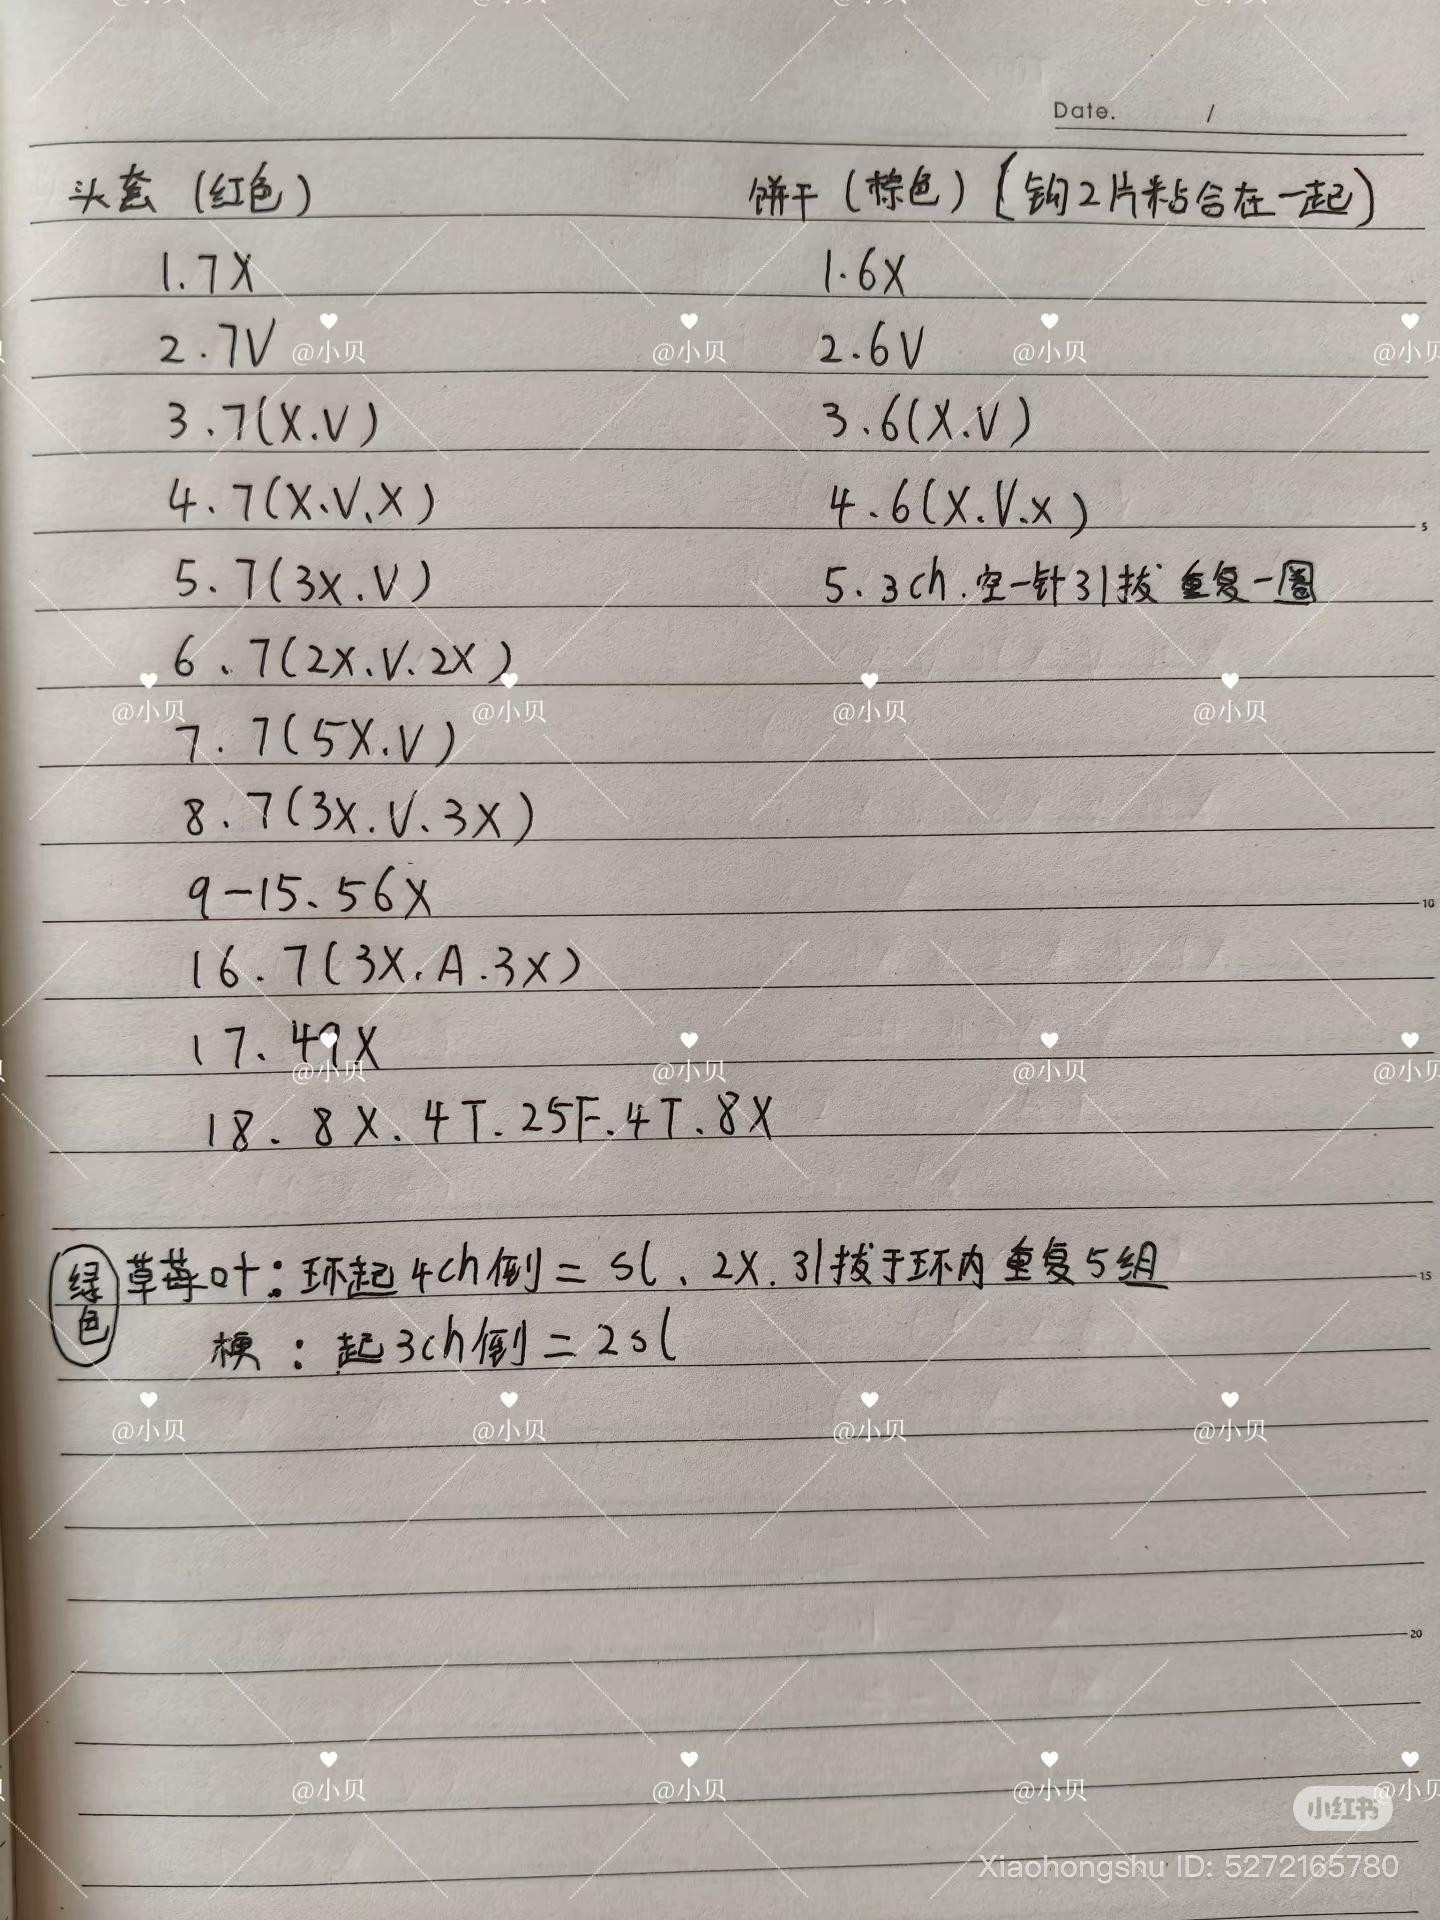 Date. /
头套（红色）
1.7X
2.7V
3.7(X.V)
4.7(X.V.X)
5.7(3X.V)
6.7(2X.V.2X)
7.7(5X.V)
8.7(3X.V.3X)
9-15、56X
16.7(3X.A.3X)
17.49X
18.8X.4T.25F.4T.8X
饼干（棕色）[钩2片粘合在一起)
1.6X
2.6V
3.6(X.V)
4.6(X.V.X)
5.3ch.空一针引拔 重复一圈
绿色 草莓叶：环起4ch倒=sl、2X.引拔于环内 重复5组
梗：起3ch倒=2sl
5
10
15
20
@小贝
小红书
Xiaohongshu ID: 5272165780